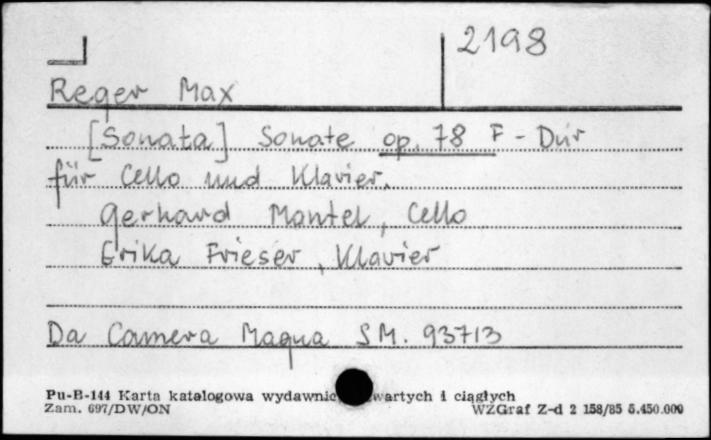 2198
Reger Max
[Sonata] Sonate op. 78 F-Dur
für Cello und Klavier.
Gerhard Mantel, Cello
Erika Frieser, Klavier
Da Camera Magna SM. 93713
Pu-B-144 Karta katalogowa wydawnic wartych i ciągłych
Zam. 697/DW/ON WZGraf Z-d 2 158/85 5.450.000